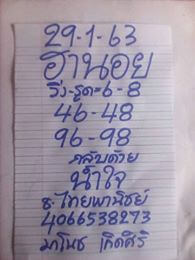 29-1-63
ฮานอย
วิ่ง-รูด=6-8
46-48
96-98
กลับด้วย
น้ำใจ
ธ.ไทยพานิชย์
4066538273
มาโนช เกิดศิริ